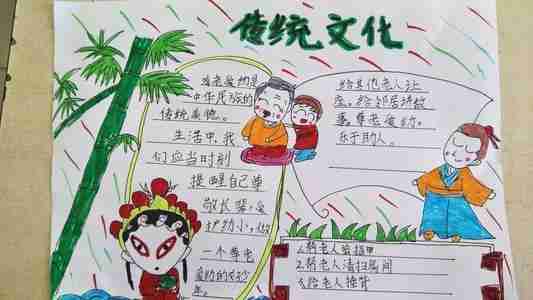 传统文化
尊老爱幼是
中华民族的
传统美德。
生活中,我
们应当时刻
提醒自己尊
敬长辈,爱
护幼小,做
一个尊老
爱幼的好少
年。
给其他老人让
座,给邻居讲故
事,尊老爱幼。
乐于助人。
1.帮老人剪指甲
2.帮老人清扫房间
3.给老人捶背